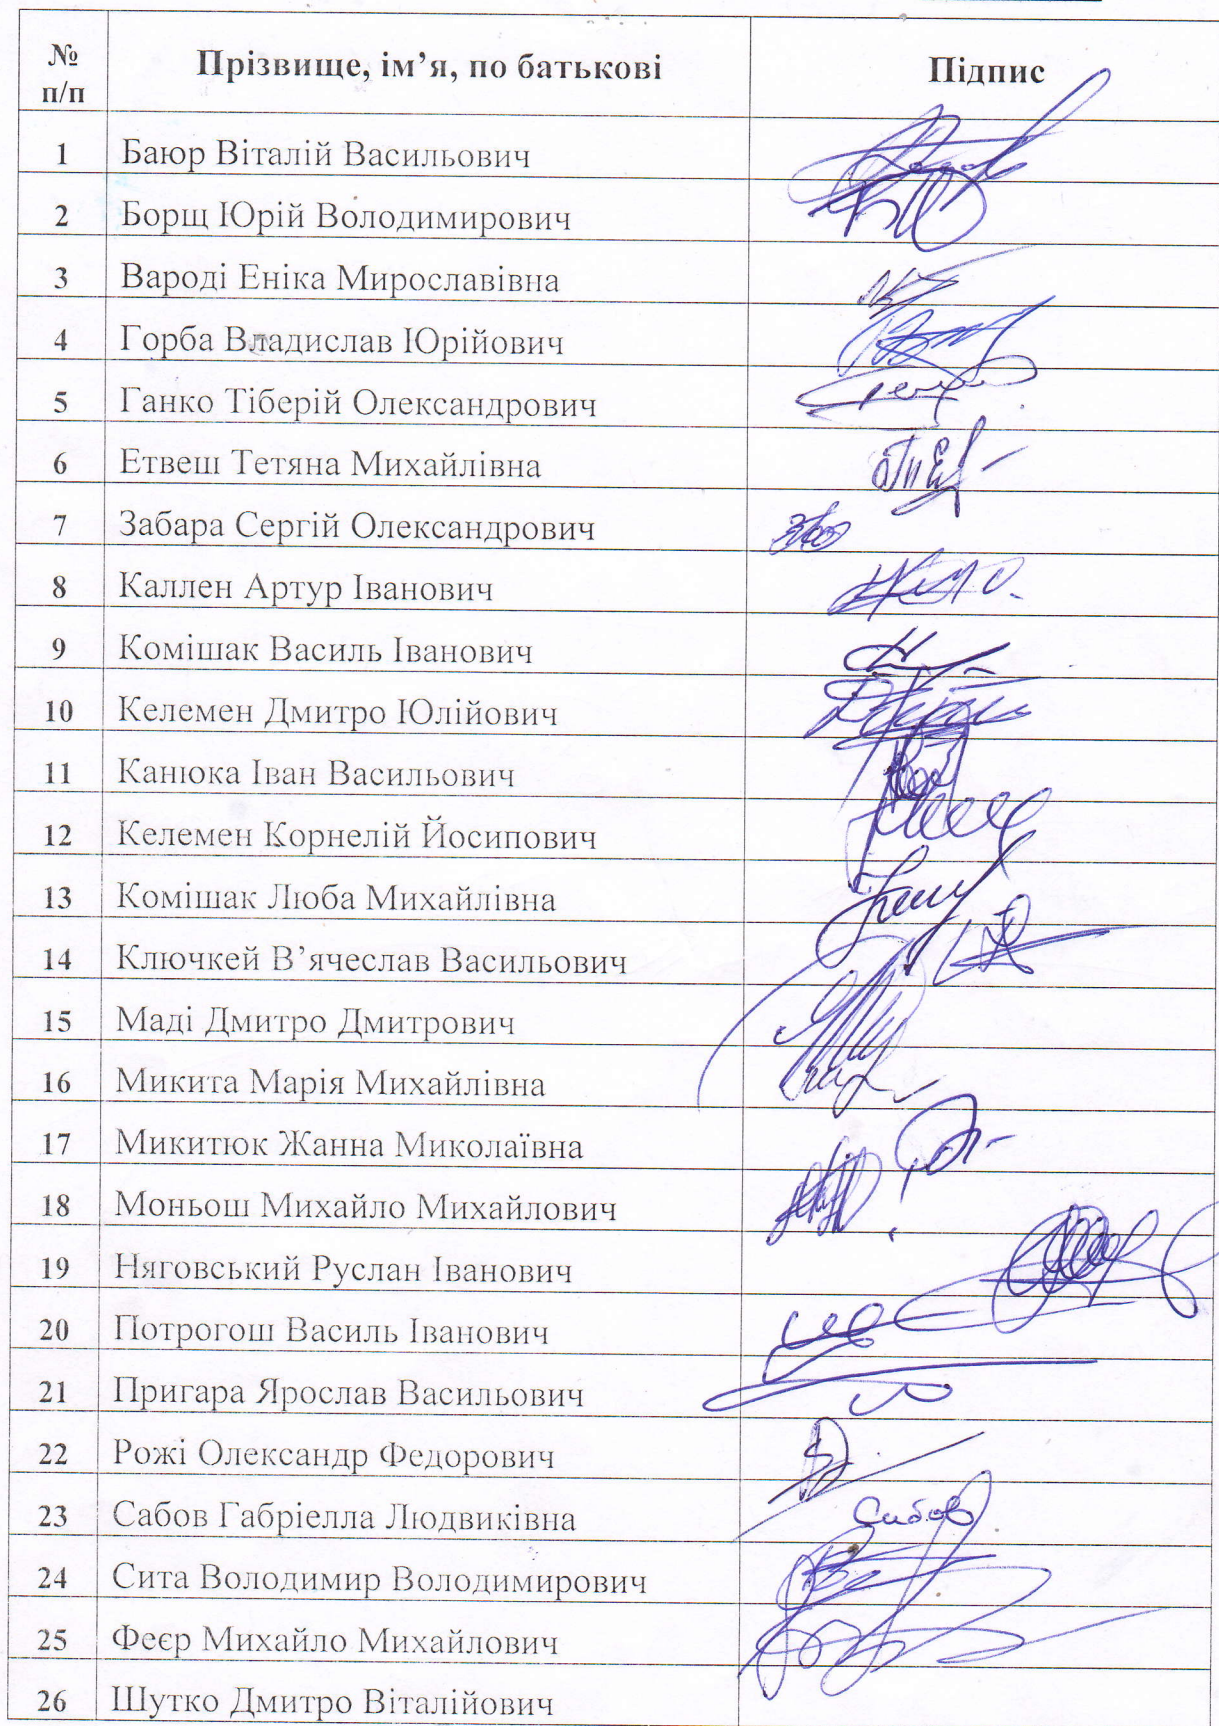 № п/п Прізвище, ім’я, по батькові Підпис
1 Баюр Віталій Васильович
2 Борщ Юрій Володимирович
3 Вароді Еніка Мирославівна
4 Горба Владислав Юрійович
5 Ганко Тіберій Олександрович
6 Етвеш Тетяна Михайлівна
7 Забара Сергій Олександрович
8 Каллен Артур Іванович
9 Комішак Василь Іванович
10 Келемен Дмитро Юлійович
11 Канюка Іван Васильович
12 Келемен Корнелій Йосипович
13 Комішак Люба Михайлівна
14 Ключкей В’ячеслав Васильович
15 Маді Дмитро Дмитрович
16 Микита Марія Михайлівна
17 Микитюк Жанна Миколаївна
18 Моньош Михайло Михайлович
19 Няговський Руслан Іванович
20 Потрогош Василь Іванович
21 Пригара Ярослав Васильович
22 Рожі Олександр Федорович
23 Сабов Габріелла Людвиківна Сабов
24 Сита Володимир Володимирович
25 Феєр Михайло Михайлович
26 Шутко Дмитро Віталійович